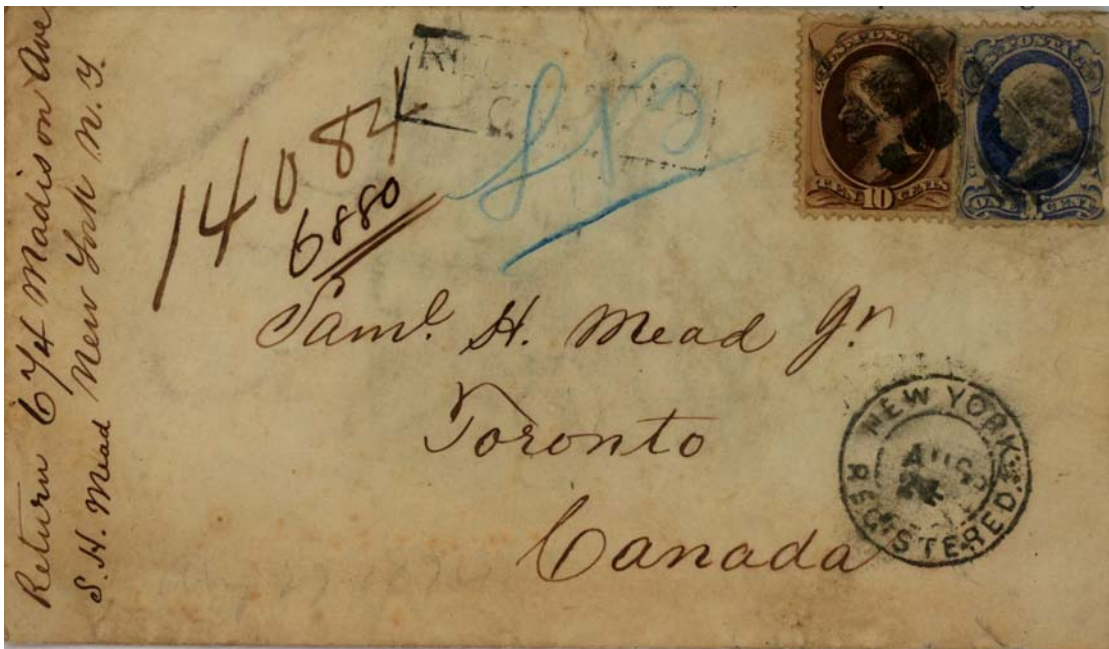 Return 674 Madison Ave
S. H. Mead New York N.Y.
14084
6880
U.S. POSTAGE
TEN 10 CENTS
U.S. POSTAGE
ONE 1 CENT
Saml. H. Mead Jr
Toronto
Canada
NEW YORK
AUG
REGISTERED.